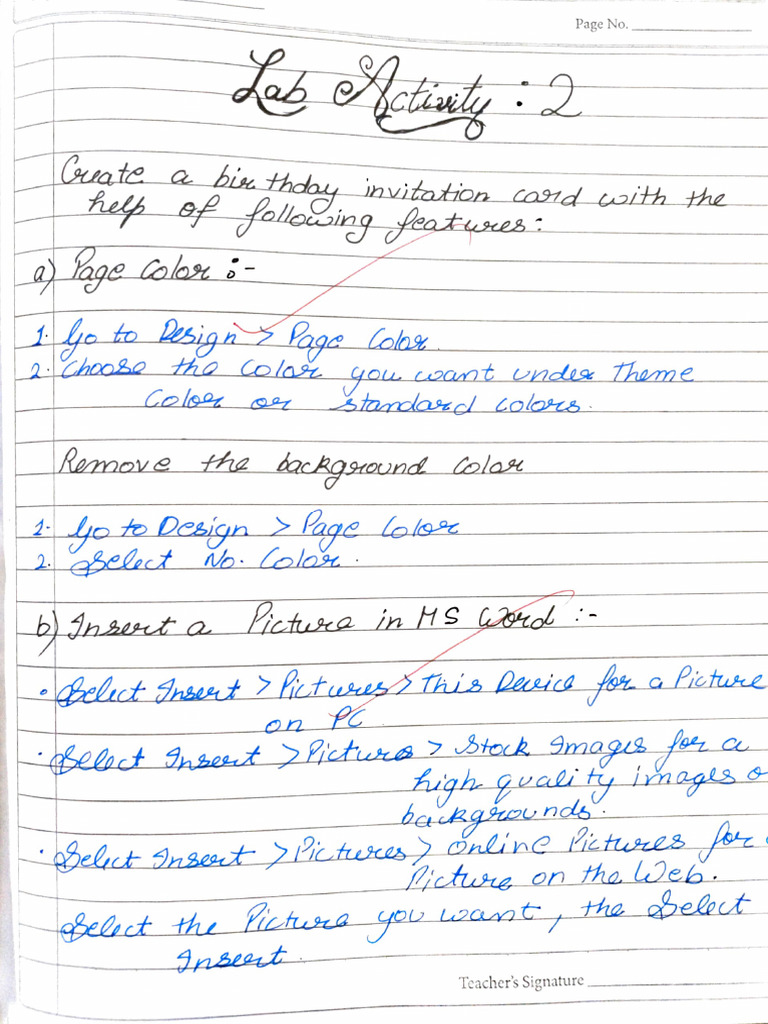 Page No.
Lab Activity : 2
Create a birthday invitation card with the
help of following features:
a) Page Color :-
1. Go to Design > Page Color.
2. Choose the Color you want under Theme
Color or standard colors.
Remove the background Color
1. Go to Design > Page Color
2. Select No. Color.
b) Insert a Picture in MS Word :-
• Select Insert > Pictures > This Device for a Picture
on PC
• Select Insert > Pictures > Stock Images for a
high quality images o
backgrounds.
• Select Insert > Pictures > Online Pictures for
Picture on the Web.
Select the Picture you want, the Select
Insert.
Teacher's Signature